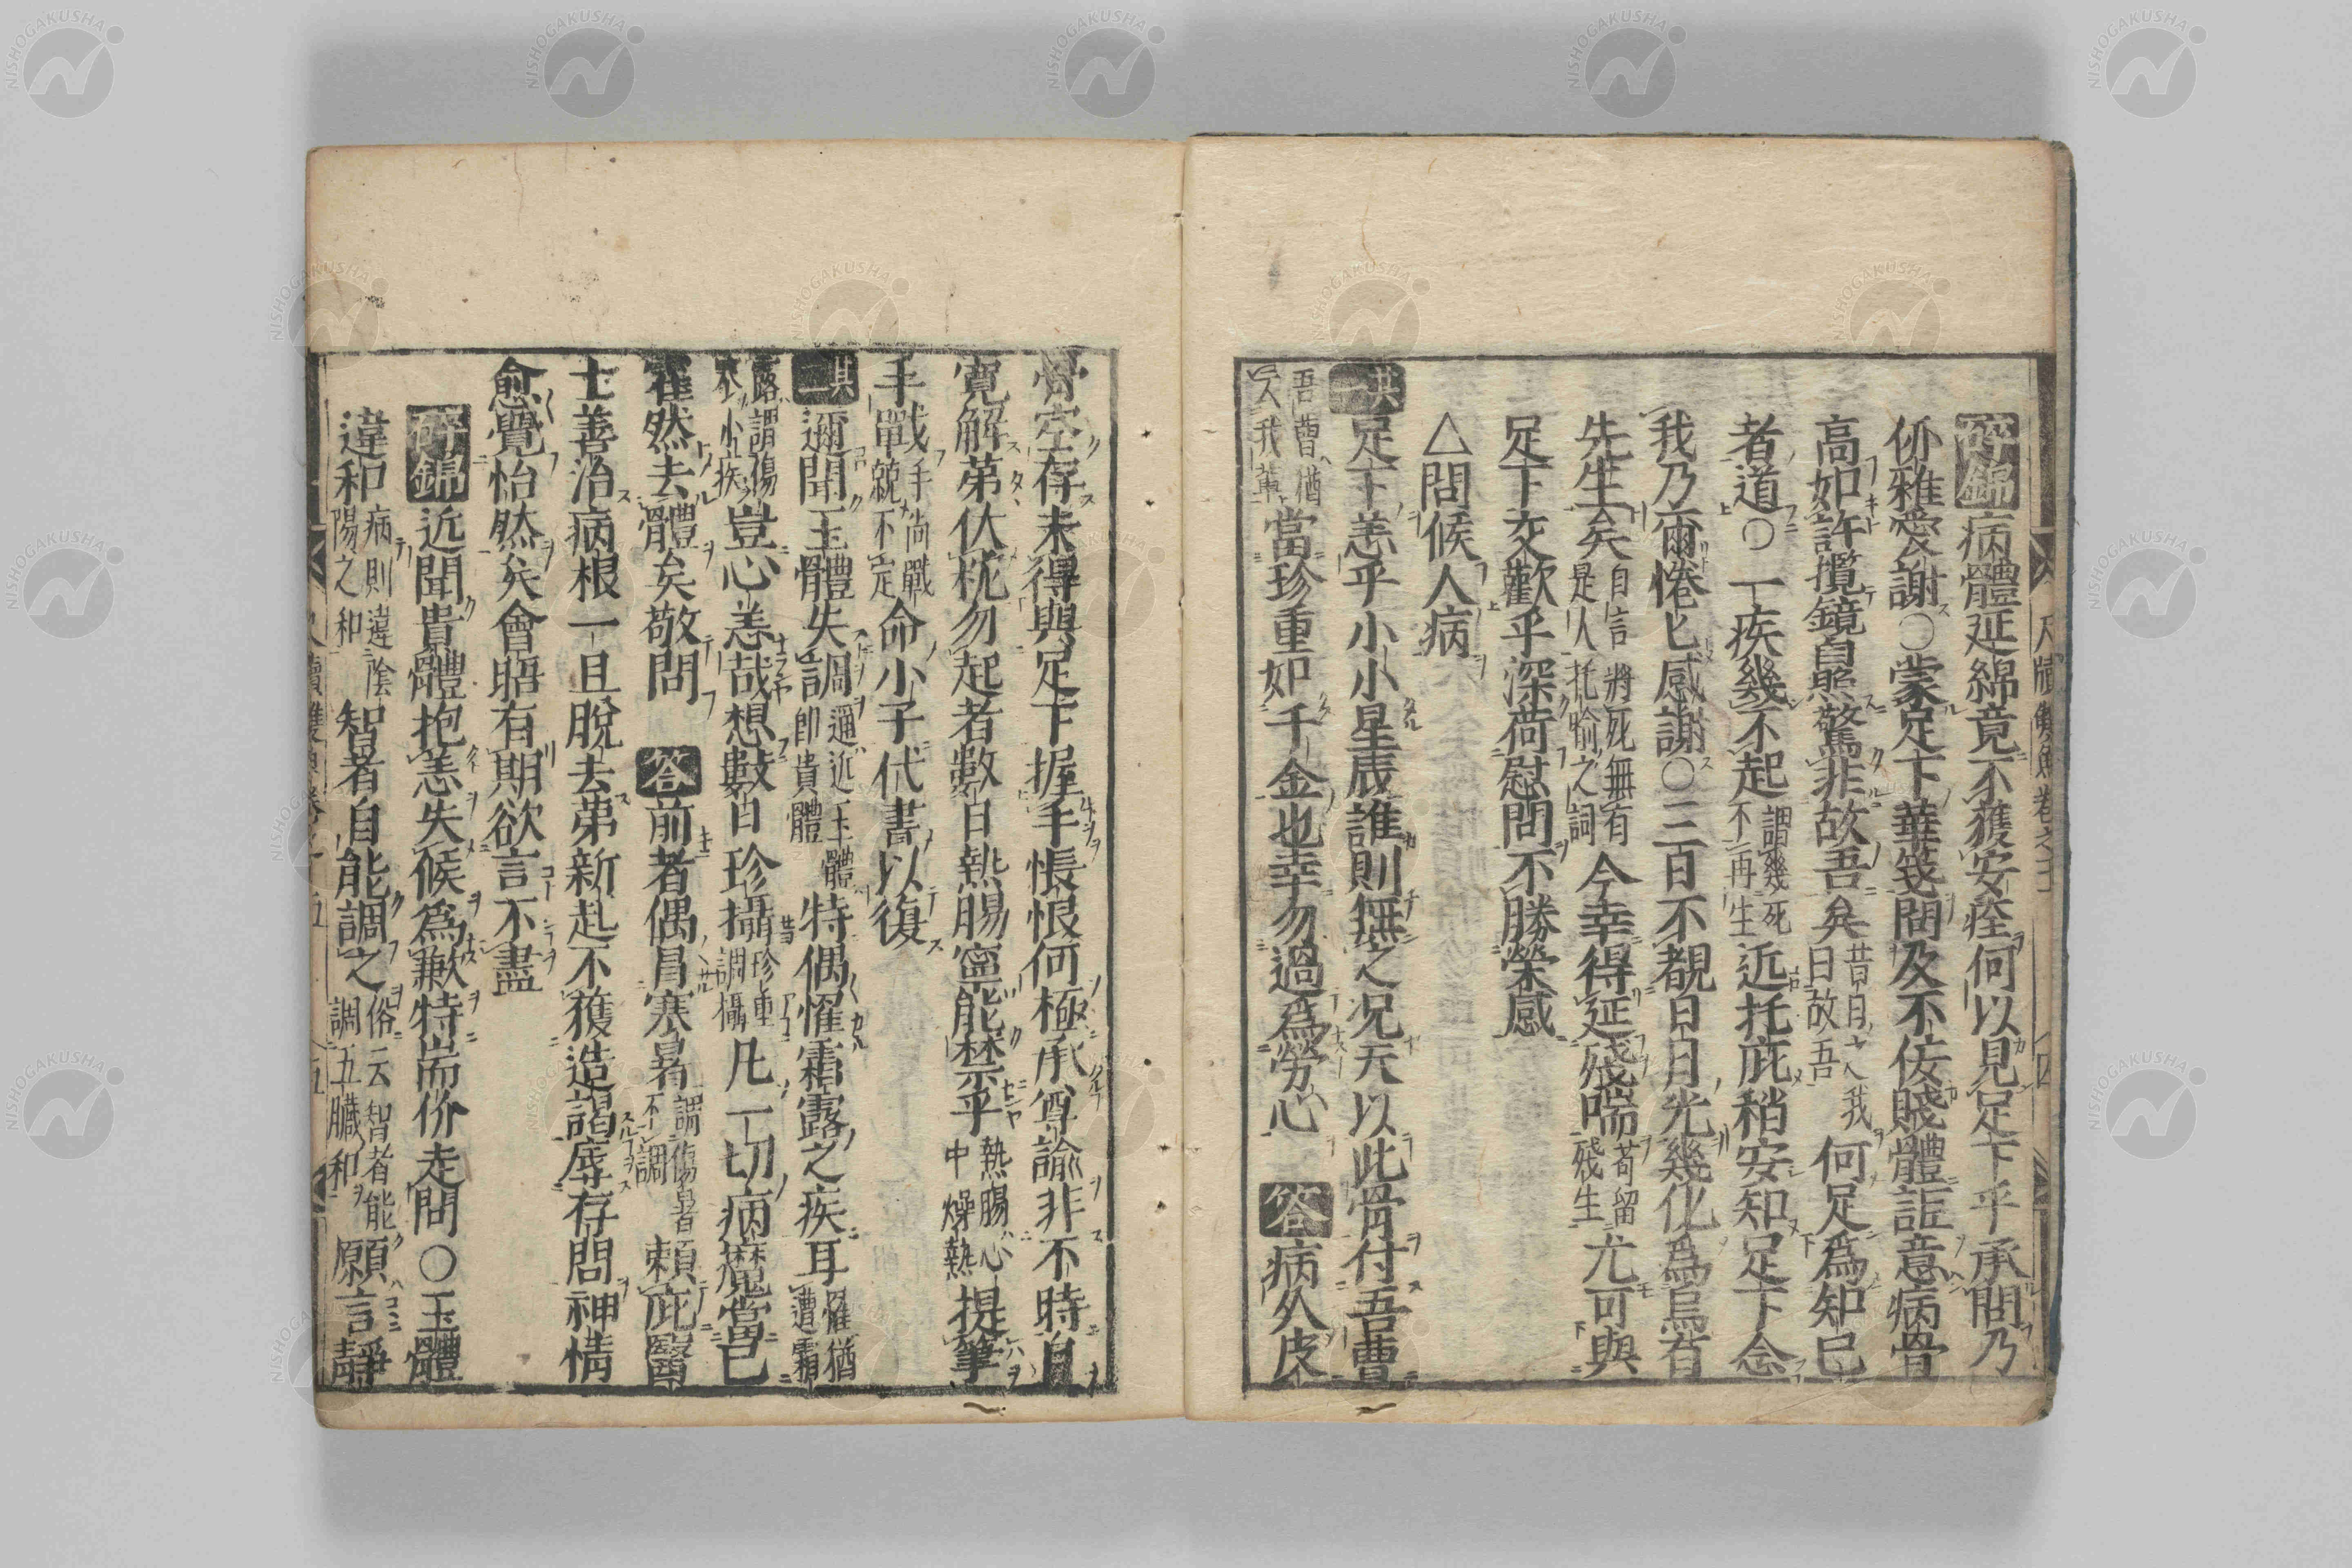 碎錦病體延綿竟不獲安痊何以見足下乎承問乃
伱雅愛謝〇蒙足下華箋問及不佞賤體詎意病骨
高如許攬鏡自照驚非故吾矣昔日之我曰故吾何足爲知已
者道〇一疾幾不起謂幾死不再生近托庇稍安知足下念
我乃爾惓匕感謝〇三百不覩日月光幾化爲烏有
先生矣自言將死無有是人托喻之詞今幸得延殘喘苟留殘生尤可與
足下交歡乎深荷慰問不勝榮感
△問候人病
其一足下恙乎小小星辰誰則無之况天以此骨付吾曹
吾曹猶人我輩當珍重如千金也幸勿過爲勞心 答病久皮
骨空存未得與足下握手悵恨何極承尊諭非不時自
寛解苐伏枕勿起者數日熱腸寧能禁乎熱腸心中燥熱提筆
手戰手尚戰兢不定命小子代書以復
其二邇聞玉體失調邇近玉體即貴體特偶罹霜露之疾耳罹猶遭霜
露謂傷于小疾豈心恙哉想數日珍攝珍重調攝凡一切病魔當已
霍然去體矣敬問 答前者偶冒寒暑謂傷暑不調頼庇醫
士善治病根一旦脫去苐新起不獲造謁辱存問神情
愈覺怡然矣會晤有期欲言不盡
碎錦近聞貴體抱恙失候爲歉特耑价走問〇玉體
違和病則違陰陽之和智者自能調之俗云智者能調五臟和願言靜
尺牘雙魚卷之二